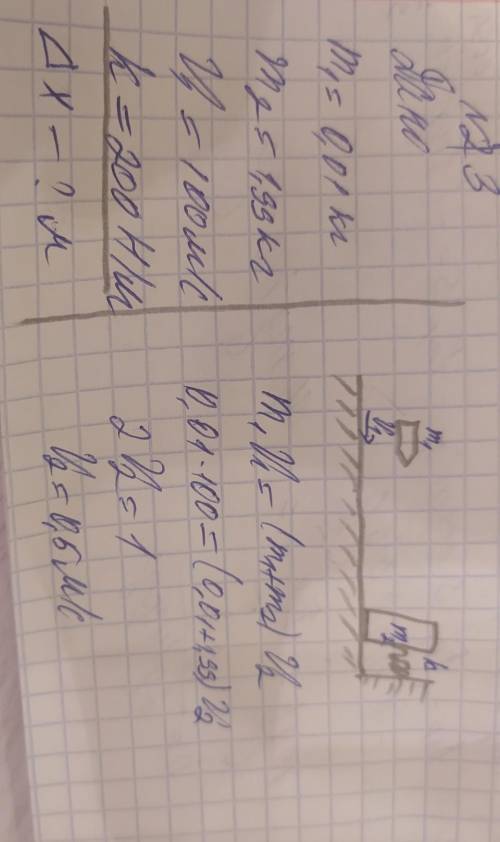 № 3
Дано
m₁ = 0,01 кг
m₂ = 1,99 кг
V₁ = 100 м/с
k = 200 Н/м
Δx - ? м
m₁
V₁
k
m₂
m₁V₁ = (m₁+m₂) V₂
0,01·100 = (0,01+1,99) V₂
2 V₂ = 1
V₂ = 0,5 м/с